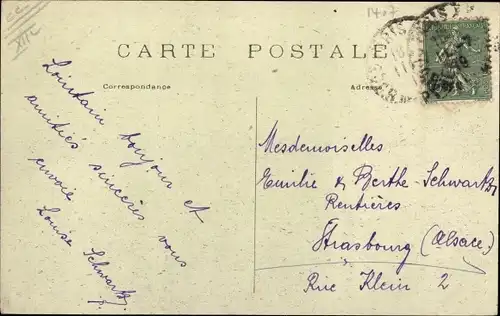 cc
XIIe
1407
CARTE POSTALE
Correspondance
Adresse
Lointain bonjour et
amitiés sincères vous
envoie
Louise Schwartz
Mesdemoiselles
Emilie & Berthe Schwartz
Rentières
Strasbourg (Alsace)
Rue Klein 2